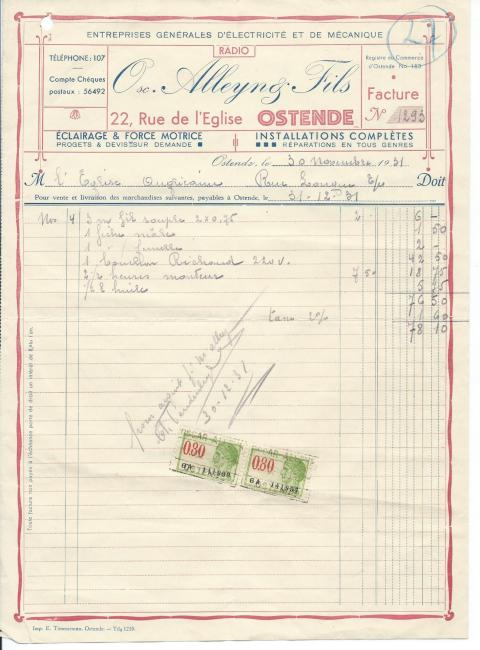 22
ENTREPRISES GÉNÉRALES D'ÉLECTRICITÉ ET DE MÉCANIQUE
RADIO
TÉLÉPHONE: 107
Compte Chèques
postaux : 56492
Osc. Alleyn & Fils
Registre du Commerce
d'Ostende No 183
Facture
No 1293
22, Rue de l'Eglise OSTENDE
ÉCLAIRAGE & FORCE MOTRICE
PROJETS & DEVIS SUR DEMANDE
INSTALLATIONS COMPLÈTES
RÉPARATIONS EN TOUS GENRES
Ostende, le 30 Novembre 1931
M l'Eglise Rue Longue E/v Doit
Pour vente et livraison des marchandises suivantes, payables à Ostende, le 31-12-31
Nov 4 3 m fil souple 2x0.75 2 - 6 -
1 fiche mâle 1 50
1 " femelle 2 -
1 Richaud 220 v. 42 50
2 1/2 heures monteur 7 50 18 75
huile
76 50
taxe 2% 1 60
78 10
pour acquit
30-12-31
0.80 0.80
Toute facture non payée à l'échéance porte de droit un intérêt de l'an.
Imp. E. Ostende. - Tél. 1219.